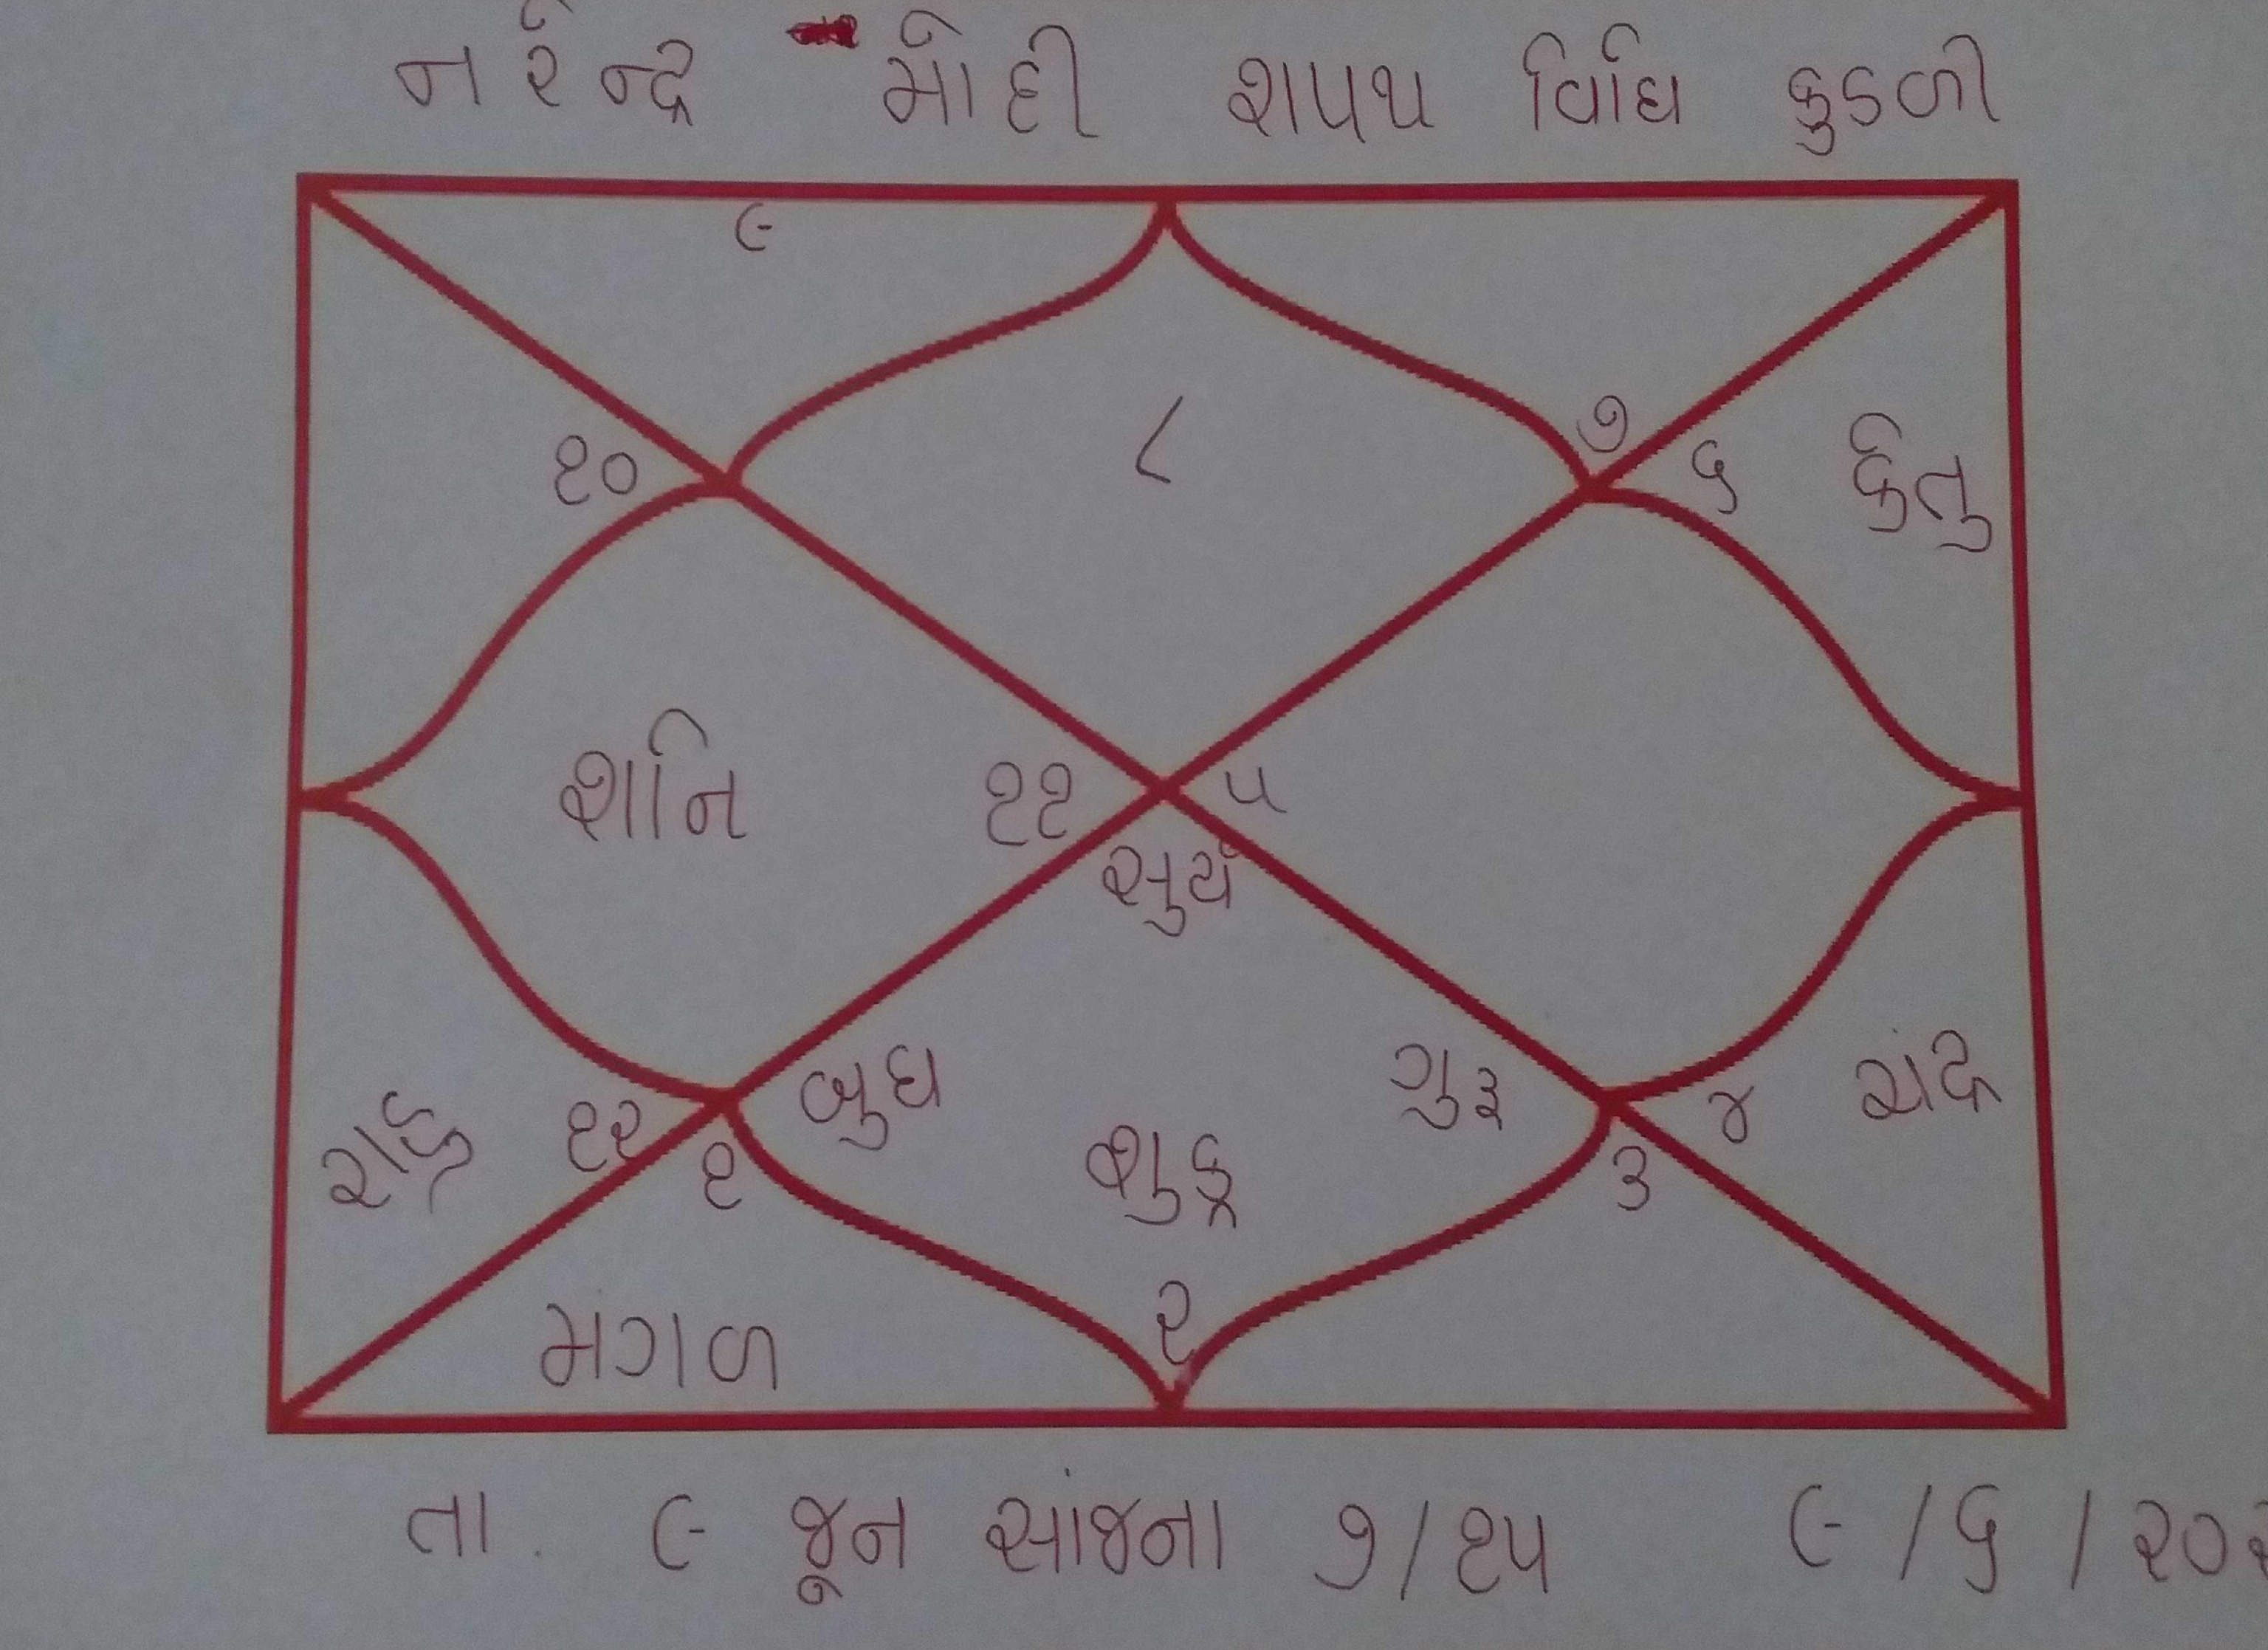 નરેન્દ્ર મોદી શપથ વિધિ કુડળી
૯
૮
૭
૧૦ ૬ કેતુ
શનિ ૧૧ ૫
સુર્ય
બુધ ગુરૂ ચંદ્ર
રાહુ ૧૨ ૧ શુક્ર ૩ ૪
મંગળ ૨
તા. ૯ જૂન સાંજના ૭/૧૫ ૯/૬/૨૦૨